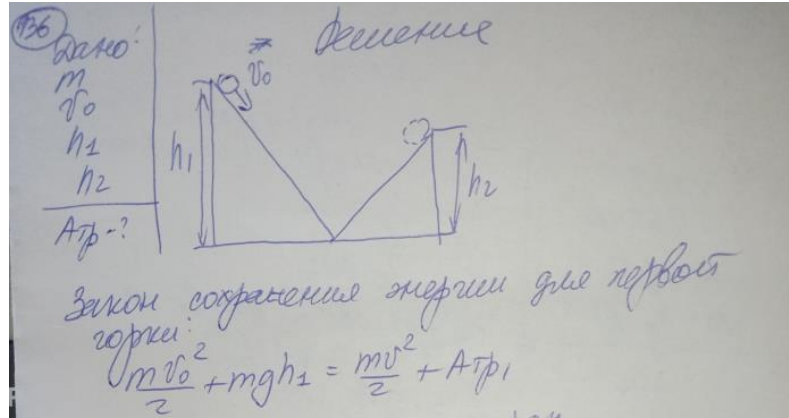 136
Решение
Дано:
m
v₀
h₁
h₂
Aтр-?
v₀
h₁
h₂
Закон сохранения энергии для первой
горки:
mv₀²/2 + mgh₁ = mv²/2 + Aтр₁